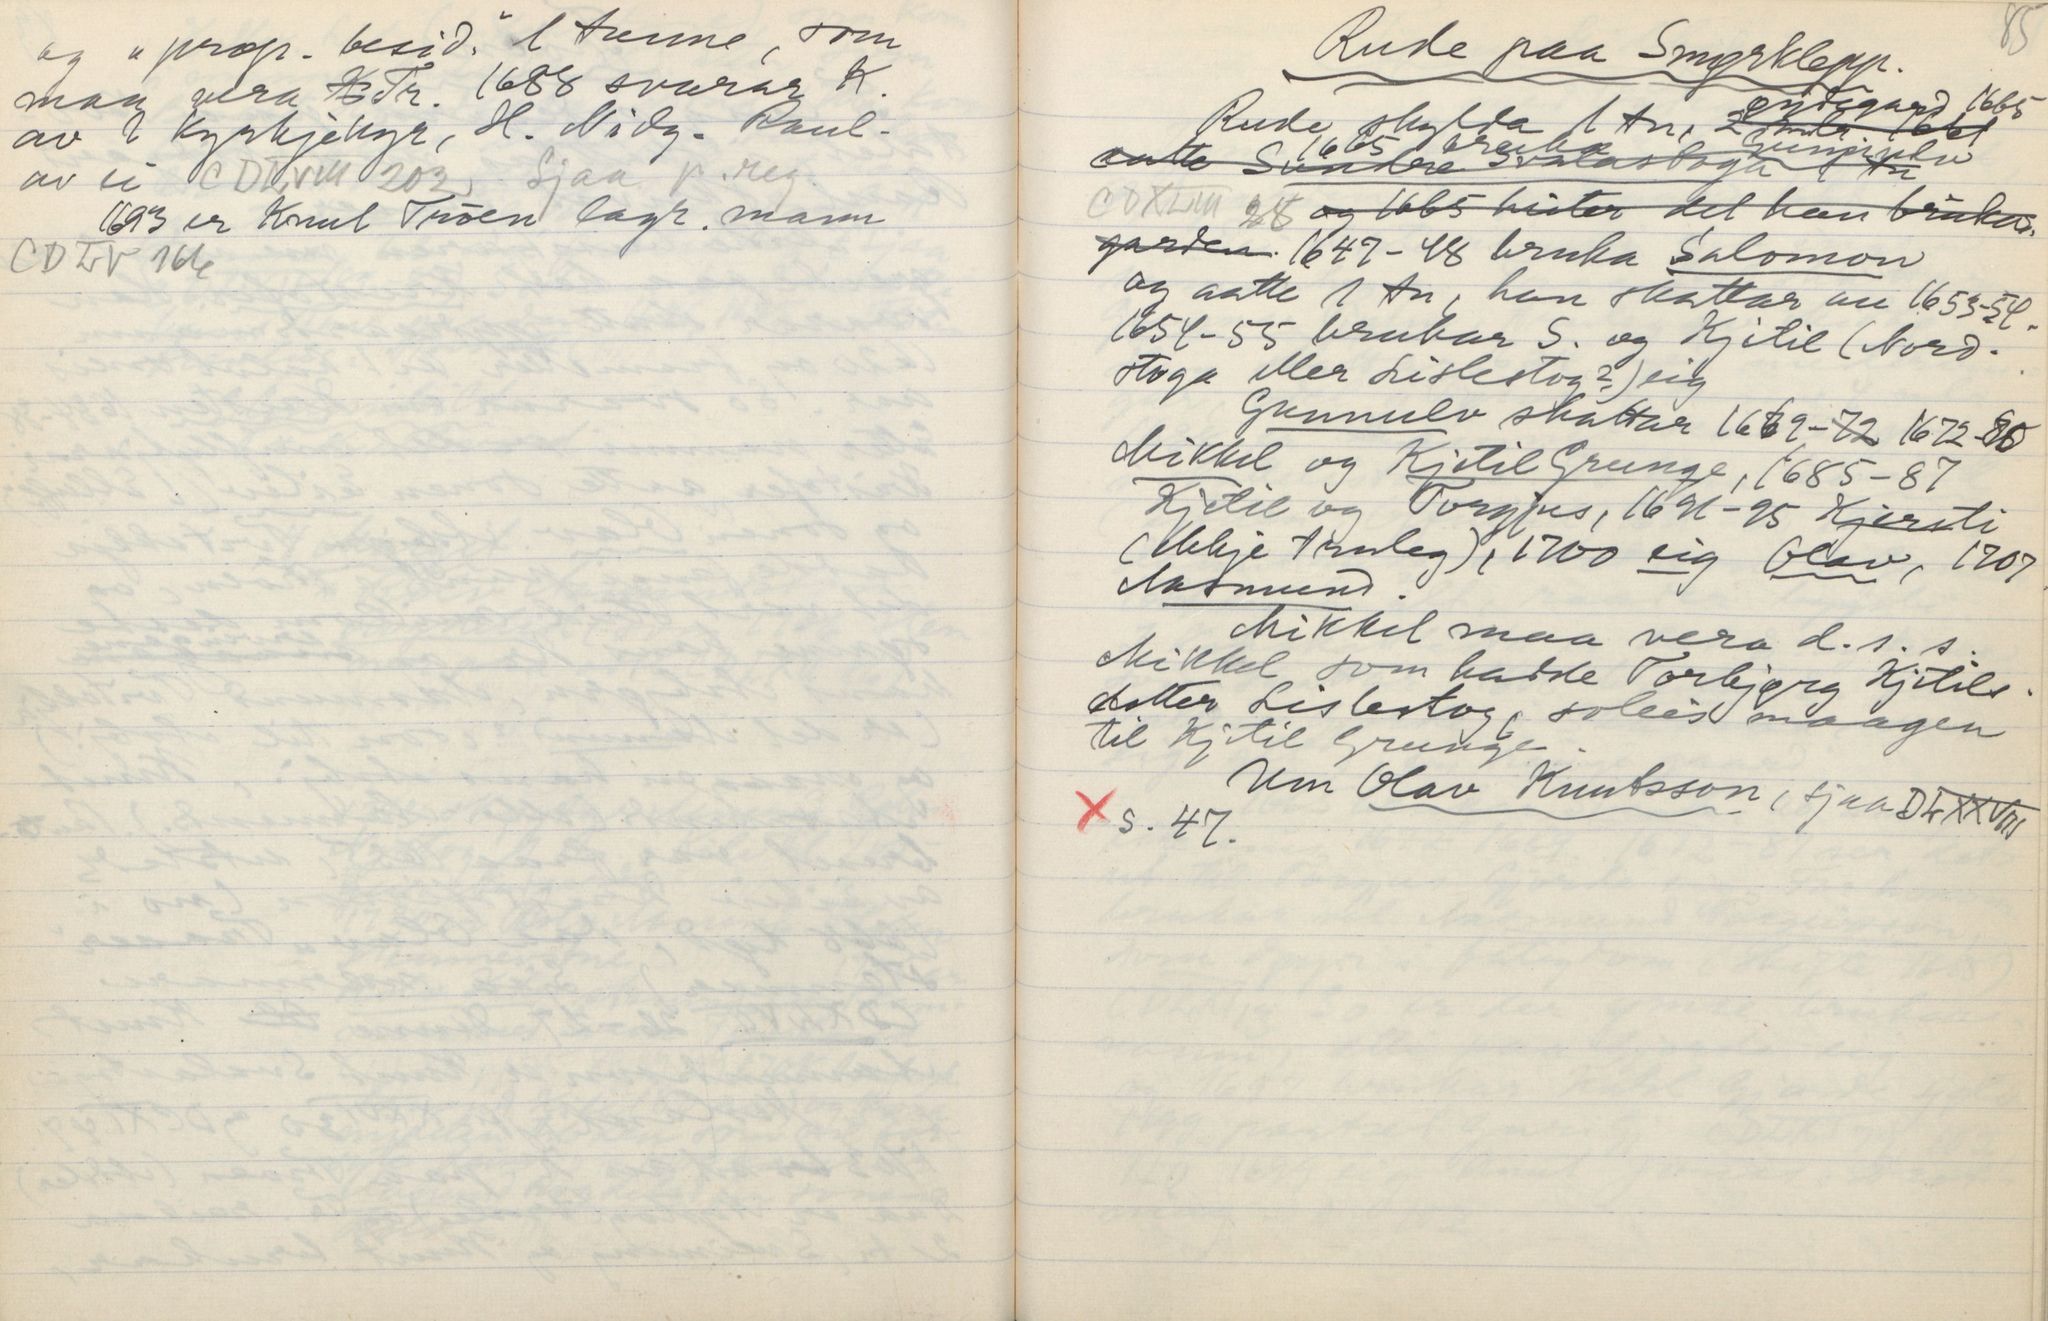 og "prop. besid." 1 tunne, som
maa vera Tr. 1688 svarar K.
av 1 kyrkjekyr, H. Nidg. Raul-
av ei CDLVIII 202, Sjaa p. reg.
1693 er Knut Trøen lagr. mann
CDLV 164
85
Rude paa Smyrklepp.
øydegard 1665
Rude skylda 1 tn, 2 1661
1665 bruka Gunnulv
aatte Søndre Svalastoga 1 tn
CDXLIII 28 og 1665 heiter det han bruka
garden. 1647-48 bruka Salomon
og aatte 1 tn, han skattar au 1653-54.
1654-55 brukar S. og Kjitil (Nord-
stoga eller Lislestog?) eig
Gunnulv skattar 1669-72 1672-80
Mikkel og Kjitil Grunge, 1685-87
Kjitil og Torgjus, 1691-95 Kjersti
(Ekkje truleg), 1700 eig Olav, 1707
Aasmund.
Mikkel maa vera d. s. s.
Mikkel som hadde Torbjørg Kjitils-
dotter Lislestog, soleis maagen
til Kjitil Grunge.
Um Olav Knutsson, sjaa DLXXVIII
X s. 47.